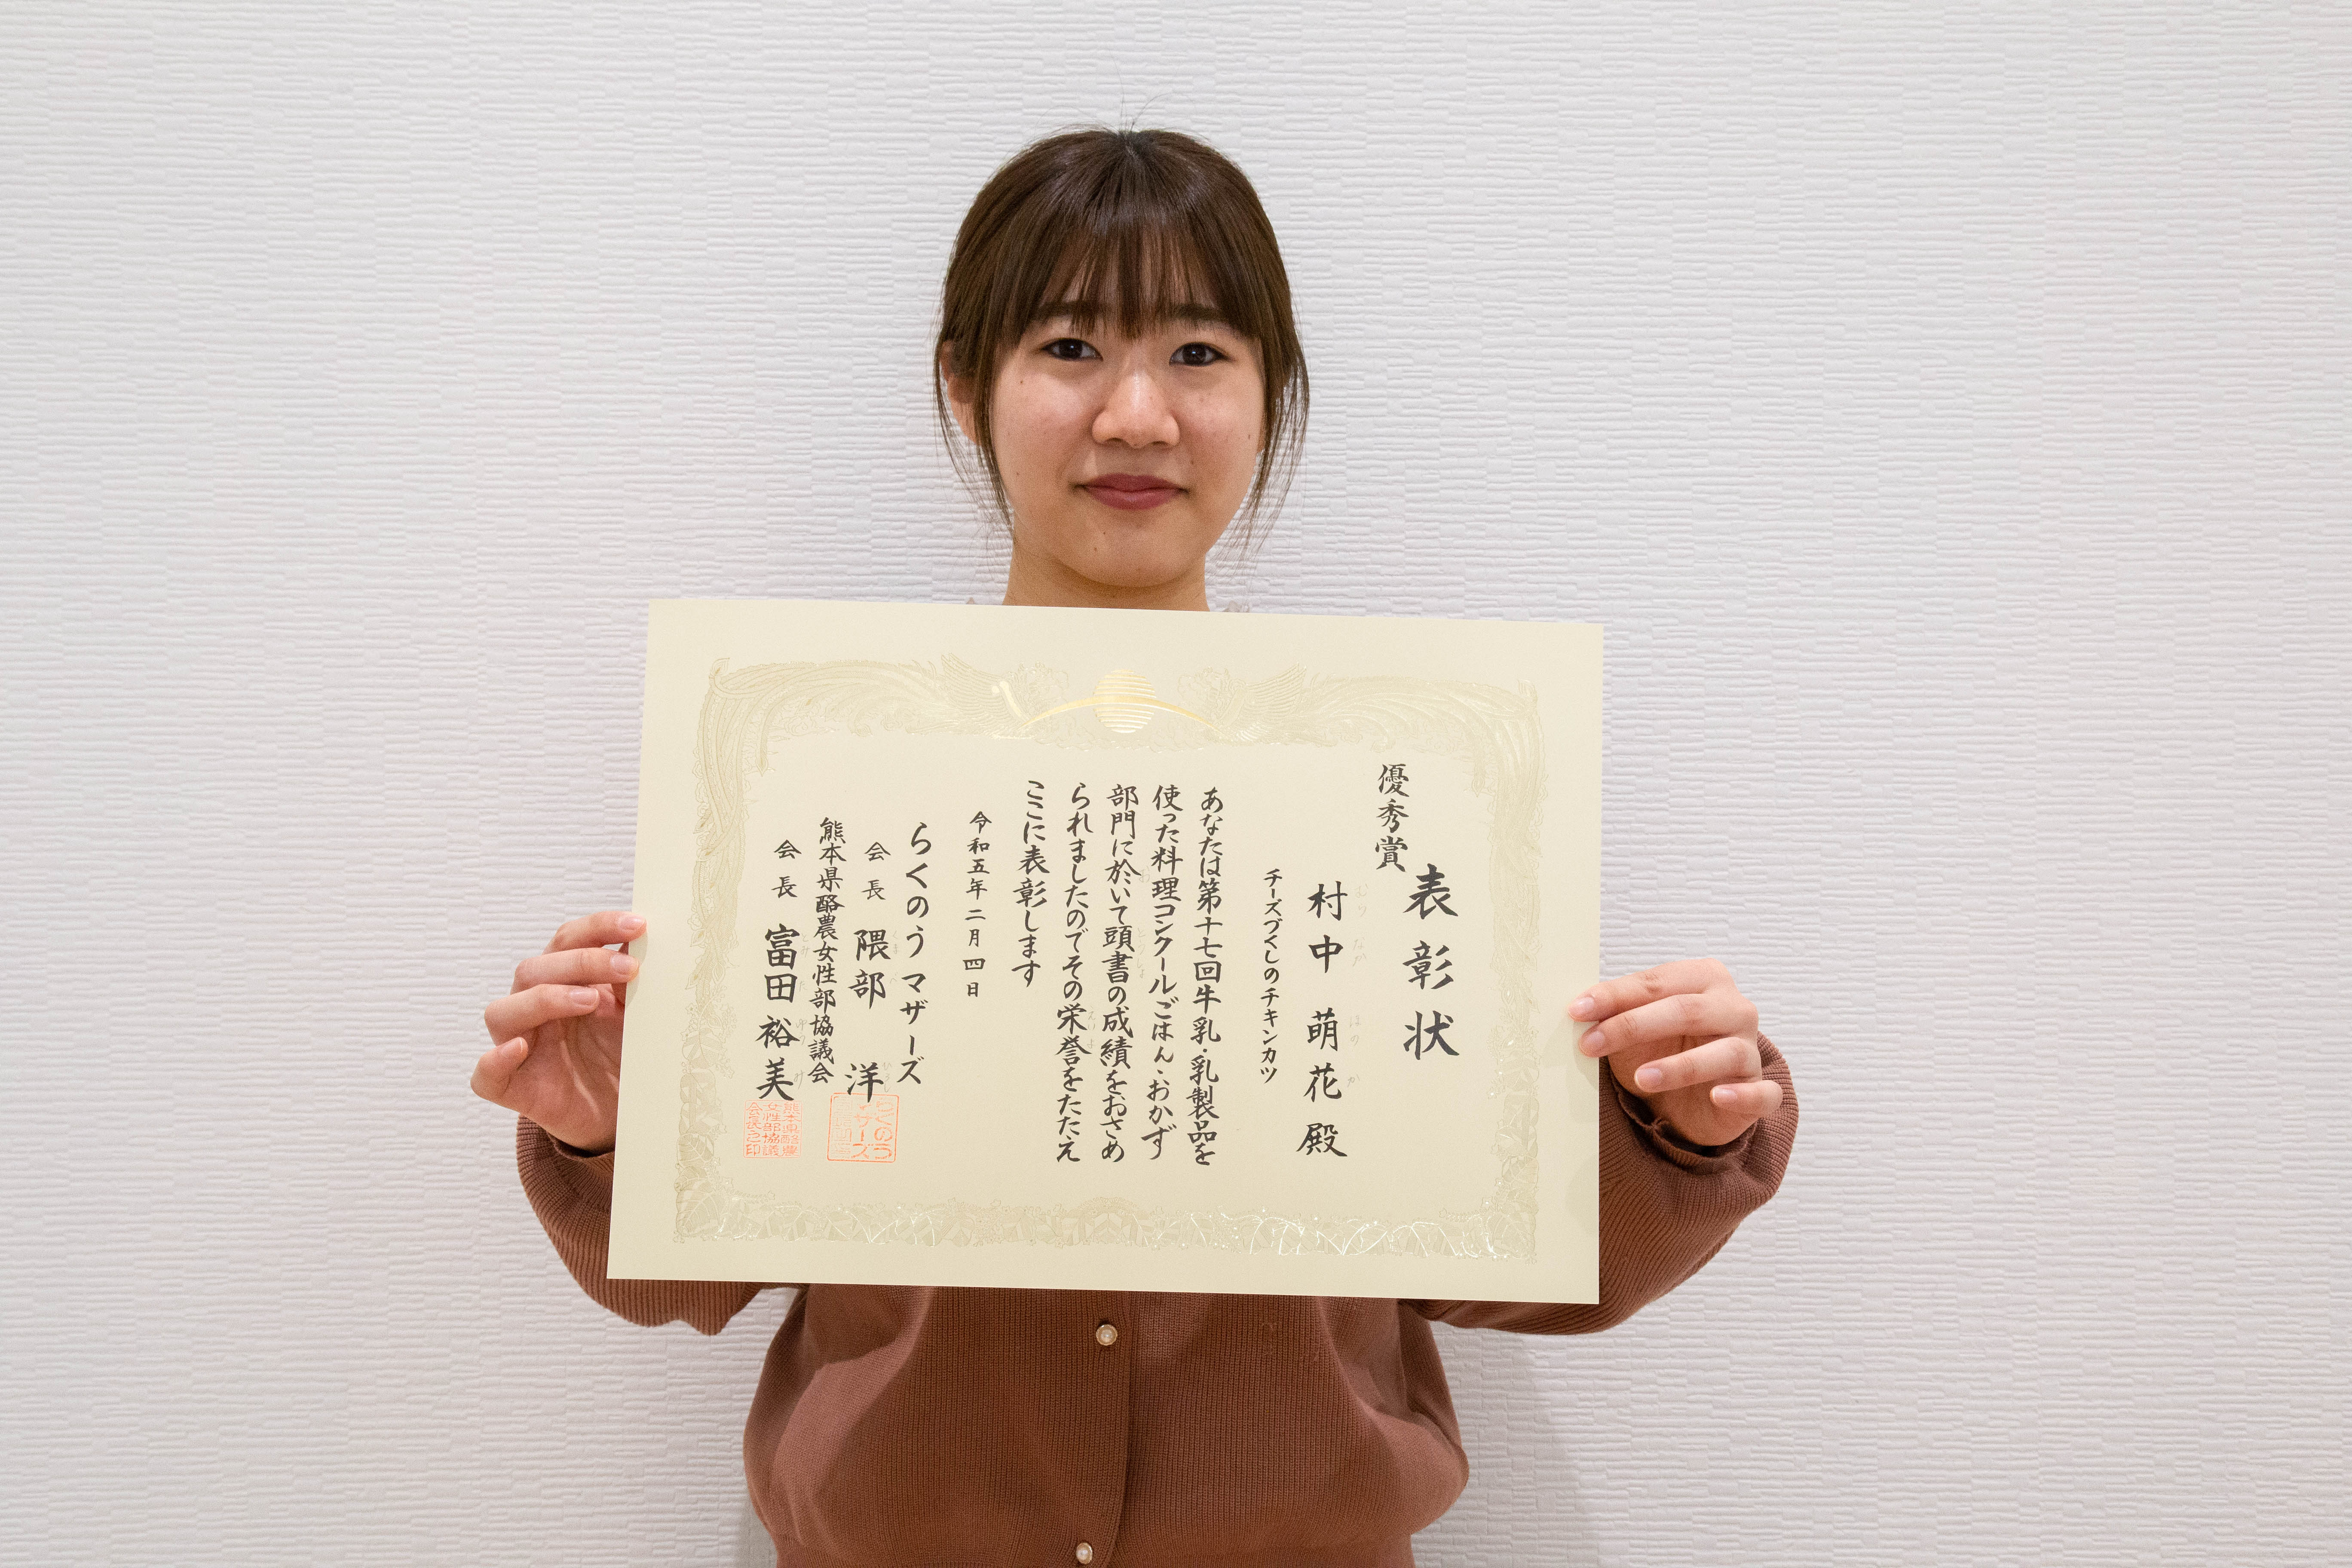 表彰状
優秀賞
村中 萌花 殿
チーズづくしのチキンカツ
あなたは第十七回牛乳・乳製品を
使った料理コンクールごはん・おかず
部門に於いて頭書の成績をおさめ
られましたのでその栄誉をたたえ
ここに表彰します
令和五年二月四日
らくのうマザーズ
会長 隈部 洋
熊本県酪農女性部協議会
会長 富田 裕美